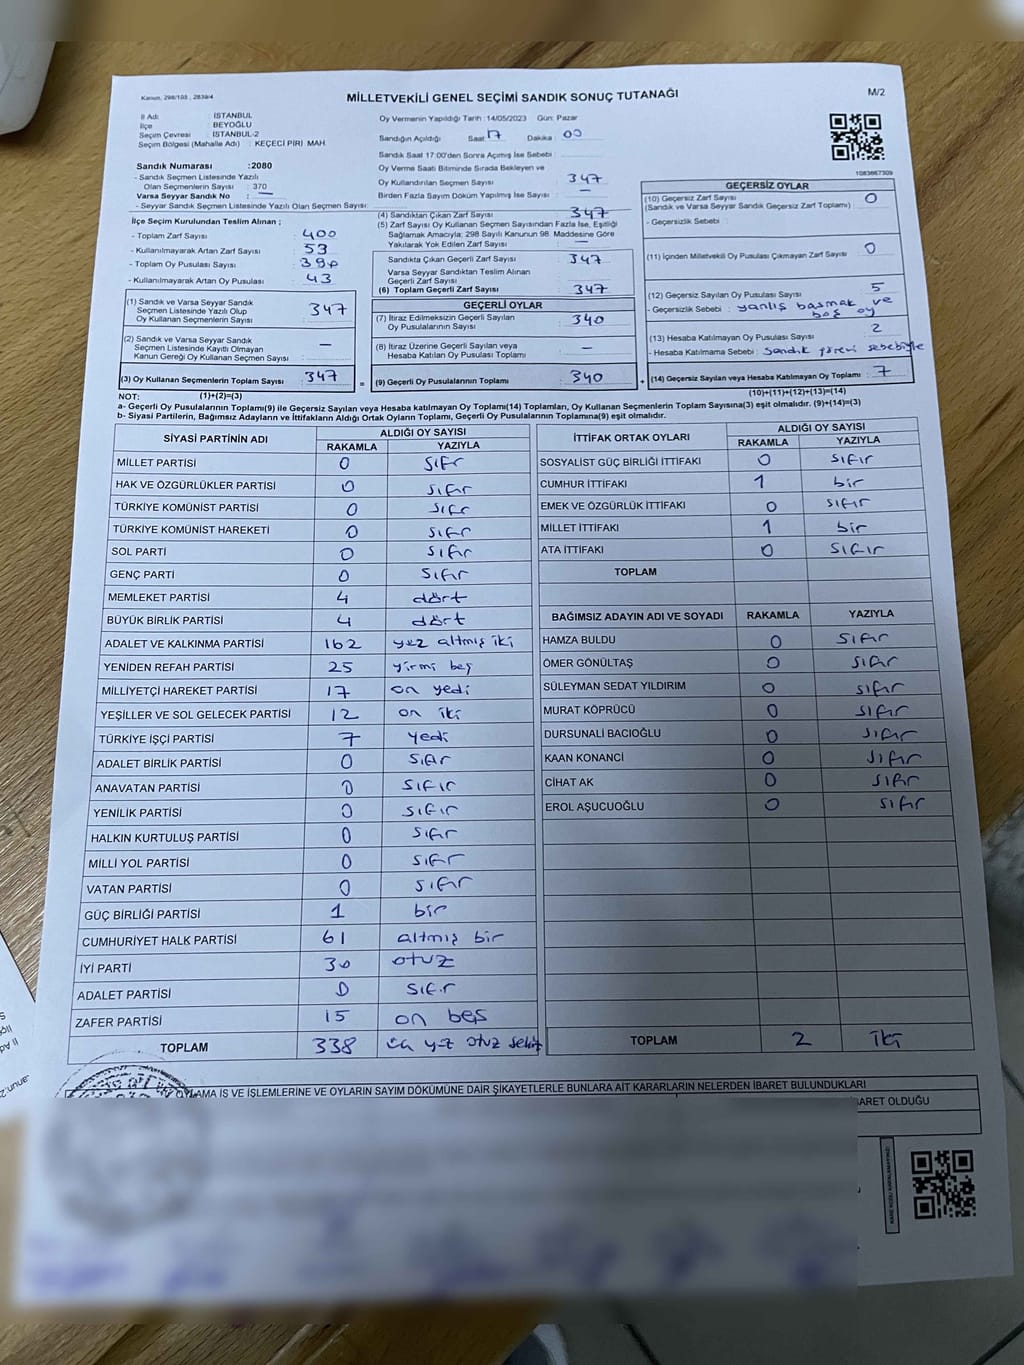 Kanun, 298/105 , 2839/4
MİLLETVEKİLİ GENEL SEÇİMİ SANDIK SONUÇ TUTANAĞI
M/2
İl Adı : İSTANBUL
İlçe : BEYOĞLU
Seçim Çevresi : İSTANBUL-2
Seçim Bölgesi (Mahalle Adı) : KEÇECİ PİRİ MAH.
Sandık Numarası :2080
- Sandık Seçmen Listesinde Yazılı
Olan Seçmenlerin Sayısı : 370
Varsa Seyyar Sandık No : —
- Seyyar Sandık Seçmen Listesinde Yazılı Olan Seçmen Sayısı:
İlçe Seçim Kurulundan Teslim Alınan ;
- Toplam Zarf Sayısı : 400
- Kullanılmayarak Artan Zarf Sayısı : 53
- Toplam Oy Pusulası Sayısı : 390
- Kullanılmayarak Artan Oy Pusulası : 43
(1) Sandık ve Varsa Seyyar Sandık
Seçmen Listesinde Yazılı Olup
Oy Kullanan Seçmenlerin Sayısı : 347
(2) Sandık ve Varsa Seyyar Sandık
Seçmen Listesinde Kayıtlı Olmayan
Kanun Gereği Oy Kullanan Seçmen Sayısı : —
(3) Oy Kullanan Seçmenlerin Toplam Sayısı : 347
Oy Vermenin Yapıldığı Tarih :14/05/2023 Gün: Pazar
Sandığın Açıldığı Saat 17 Dakika : 00
Sandık Saat 17:00'den Sonra Açımış İse Sebebi :
Oy Verme Saati Bitiminde Sırada Bekleyen ve
Oy Kullandırılan Seçmen Sayısı : 347
Birden Fazla Sayım Döküm Yapılmış İse Sayısı : —
(4) Sandıktan Çıkan Zarf Sayısı : 347
(5) Zarf Sayısı Oy Kullanan Seçmen Sayısından Fazla İse, Eşitliği
Sağlamak Amacıyla; 298 Sayılı Kanunun 98. Maddesine Göre
Yakılarak Yok Edilen Zarf Sayısı : —
Sandıkta Çıkan Geçerli Zarf Sayısı : 347
Varsa Seyyar Sandıktan Teslim Alınan
Geçerli Zarf Sayısı :
(6) Toplam Geçerli Zarf Sayısı : 347
GEÇERLİ OYLAR
(7) İtiraz Edilmeksizin Geçerli Sayılan
Oy Pusulalarının Sayısı : 340
(8) İtiraz Üzerine Geçerli Sayılan veya
Hesaba Katılan Oy Pusulası Toplamı : —
= (9) Geçerli Oy Pusulalarının Toplamı : 340
1083667309
GEÇERSİZ OYLAR
(10) Geçersiz Zarf Sayısı : 0
(Sandık ve Varsa Seyyar Sandık Geçersiz Zarf Toplamı)
- Geçersizlik Sebebi :
(11) İçinden Milletvekili Oy Pusulası Çıkmayan Zarf Sayısı : 0
(12) Geçersiz Sayılan Oy Pusulası Sayısı : 5
- Geçersizlik Sebebi : yanlış basmak ve
boş oy
(13) Hesaba Katılmayan Oy Pusulası Sayısı : 2
- Hesaba Katılmama Sebebi : Sandık görevi sebebiyle
+ (14) Geçersiz Sayılan veya Hesaba Katılmayan Oy Toplamı : 7
NOT: (1)+(2)=(3) (10)+(11)+(12)+(13)=(14)
a- Geçerli Oy Pusulalarının Toplamı(9) ile Geçersiz Sayılan veya Hesaba katılmayan Oy Toplamı(14) Toplamları, Oy Kullanan Seçmenlerin Toplam Sayısına(3) eşit olmalıdır. (9)+(14)=(3)
b- Siyasi Partilerin, Bağımsız Adayların ve İttifakların Aldığı Ortak Oyların Toplamı, Geçerli Oy Pusulalarının Toplamına(9) eşit olmalıdır.
SİYASİ PARTİNİN ADI ALDIĞI OY SAYISI
RAKAMLA YAZIYLA
MİLLET PARTİSİ 0 sıfır
HAK VE ÖZGÜRLÜKLER PARTİSİ 0 sıfır
TÜRKİYE KOMÜNİST PARTİSİ 0 sıfır
TÜRKİYE KOMÜNİST HAREKETİ 0 sıfır
SOL PARTİ 0 sıfır
GENÇ PARTİ 0 sıfır
MEMLEKET PARTİSİ 4 dört
BÜYÜK BİRLİK PARTİSİ 4 dört
ADALET VE KALKINMA PARTİSİ 162 yüz altmış iki
YENİDEN REFAH PARTİSİ 25 yirmi beş
MİLLİYETÇİ HAREKET PARTİSİ 17 on yedi
YEŞİLLER VE SOL GELECEK PARTİSİ 12 on iki
TÜRKİYE İŞÇİ PARTİSİ 7 yedi
ADALET BİRLİK PARTİSİ 0 sıfır
ANAVATAN PARTİSİ 0 sıfır
YENİLİK PARTİSİ 0 sıfır
HALKIN KURTULUŞ PARTİSİ 0 sıfır
MİLLİ YOL PARTİSİ 0 sıfır
VATAN PARTİSİ 0 sıfır
GÜÇ BİRLİĞİ PARTİSİ 1 bir
CUMHURİYET HALK PARTİSİ 61 altmış bir
İYİ PARTİ 30 otuz
ADALET PARTİSİ 0 sıfır
ZAFER PARTİSİ 15 on beş
TOPLAM 338 üç yüz otuz sekiz
İTTİFAK ORTAK OYLARI ALDIĞI OY SAYISI
RAKAMLA YAZIYLA
SOSYALİST GÜÇ BİRLİĞİ İTTİFAKI 0 sıfır
CUMHUR İTTİFAKI 1 bir
EMEK VE ÖZGÜRLÜK İTTİFAKI 0 sıfır
MİLLET İTTİFAKI 1 bir
ATA İTTİFAKI 0 sıfır
TOPLAM
BAĞIMSIZ ADAYIN ADI VE SOYADI RAKAMLA YAZIYLA
HAMZA BULDU 0 sıfır
ÖMER GÖNÜLTAŞ 0 sıfır
SÜLEYMAN SEDAT YILDIRIM 0 sıfır
MURAT KÖPRÜCÜ 0 sıfır
DURSUNALİ BACIOĞLU 0 sıfır
KAAN KONANCİ 0 sıfır
CİHAT AK 0 sıfır
EROL AŞUCUOĞLU 0 sıfır
TOPLAM 2 iki
OYLAMA İŞ VE İŞLEMLERİNE VE OYLARIN SAYIM DÖKÜMÜNE DAİR ŞİKAYETLERLE BUNLARA AİT KARARLARIN NELERDEN İBARET BULUNDUKLARI
BARET OLDUĞU